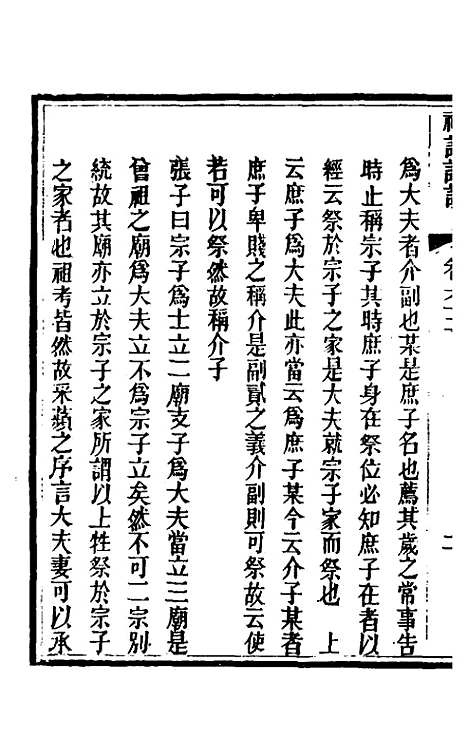 爲大夫者介副也某是庶子名也薦其歲之常事告
時止稱宗子其時庶子身在祭位必知庶子在者以
經云祭於宗子之家是大夫就宗子家而祭也　上
云庶子爲大夫此亦當云爲庶子某今云介子某者
庶子卑賤之稱介是副貳之義介副則可祭故云使
若可以祭然故稱介子
張子曰宗子爲士立二廟支子爲大夫當立三廟是
曾祖之廟爲大夫立不爲宗子立矣然不可二宗別
統故其廟亦立於宗子之家所謂以上牲祭於宗子
之家者也祖考皆然故采蘋之序言大夫妻可以承